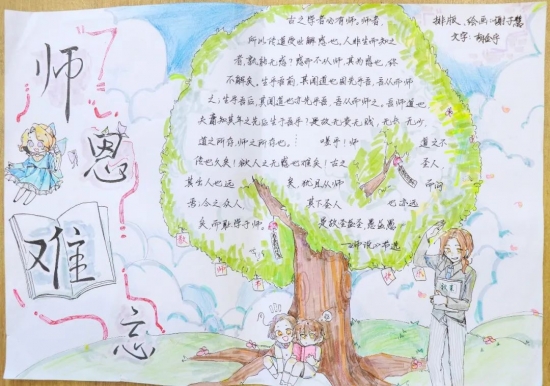 师
恩
难
忘
排版、绘画:谢子慧
文字:
古之学者必有师。师者，
所以传道受业解惑也。人非生而知之
者，孰能无惑？惑而不从师，其为惑也，终
不解矣。生乎吾前，其闻道也固先乎吾，吾从而师
之；生乎吾后，其闻道也亦先乎吾，吾从而师之。吾师道也
夫庸知其年之先后生于吾乎！是故无贵无贱，无长无少
道之所存，师之所存也。 嗟乎！师 道之不
传也久矣！欲人之无惑也难矣！古之 圣人
其出人也远 矣，犹且从师 而问
焉；今之众人 其下圣人 也亦远
矣，而耻学于师。 是故圣益圣，愚益愚
——《师说》节选
教
师
节
快
乐